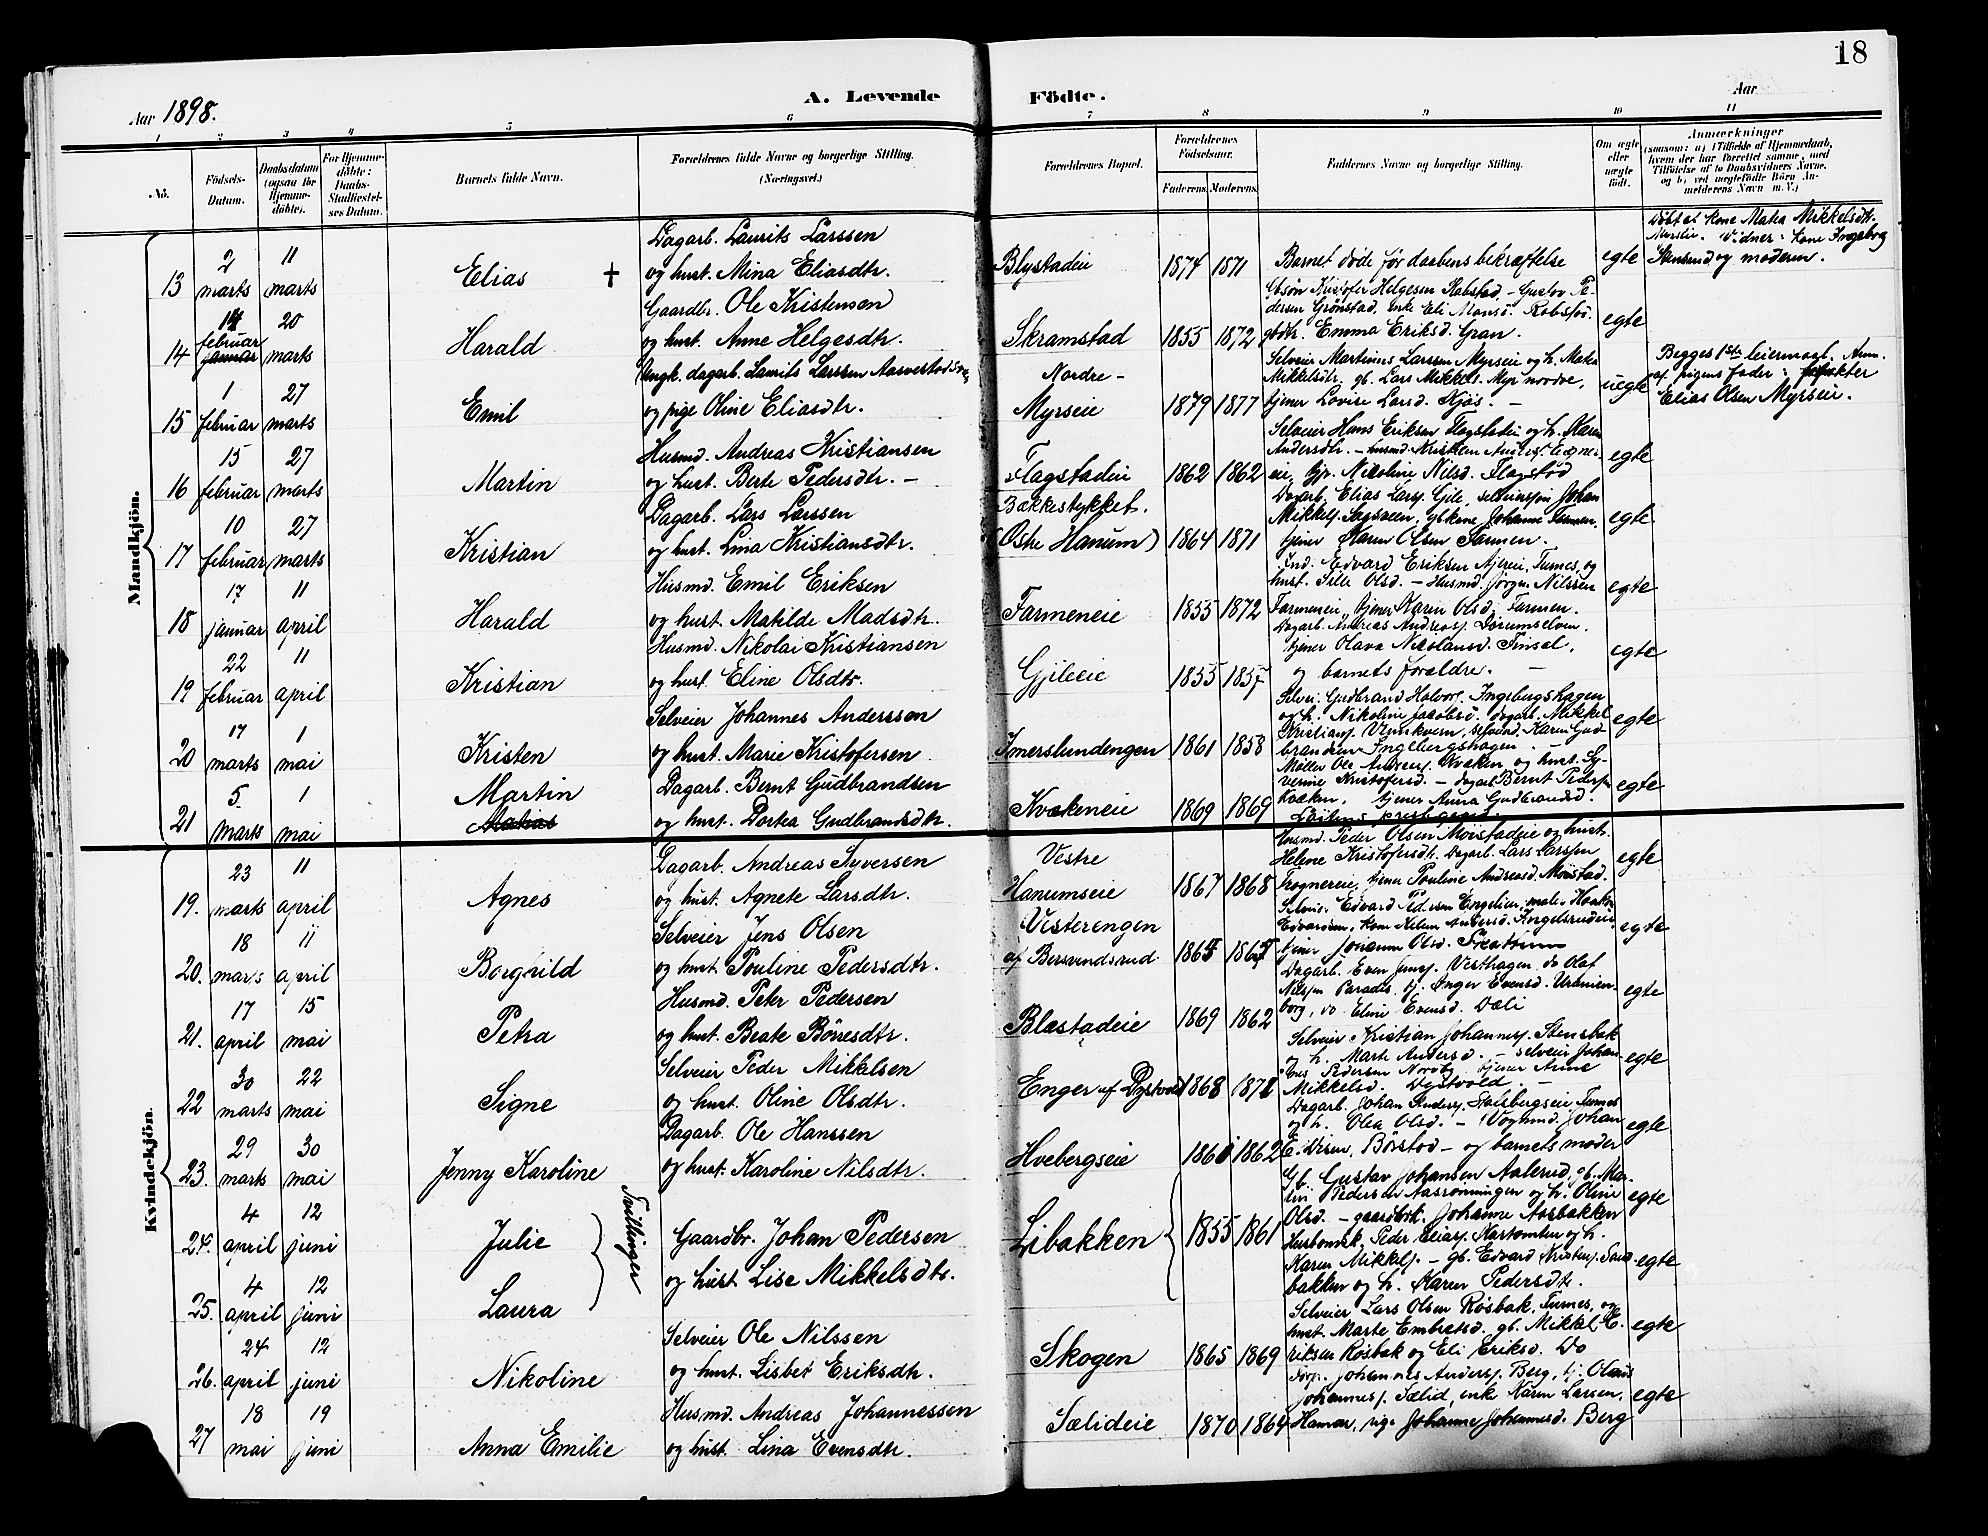 18
Aar 1898.
A. Levende Födte.
Aar
1 2 3 4 5 6 7 8 9 10 11
No.
Födsels-Datum.
Daabsdatum (ogsaa for Hjemme-döbte).
For Hjemme-döbte: Daabs-Stadfæstel-ses Datum.
Barnets fulde Navn.
Forældrenes fulde Navne og borgerlige Stilling. (Næringsvei.)
Forældrenes Bopæl.
Forældrenes Födselsaar.
Faderens. Moderens.
Faddernes Navne og borgerlige Stilling.
Om ægte eller uægte födt.
Anmærkninger
(saasom: a) i Tilfælde af Hjemmedaab, hvem der har forrettet samme, med Tilföielse af to Daabsvidners Navne, og b) ved uægtefödte Börn An-melderens Navn m. V.)
Mandkjön.
13 2 marts 11 marts Elias †
Dagarb. Laurits Larssen
og hust. Mina Eliasdtr.
Blystadeie 1874 1871
Barnet døde før daabens bekræftelse
egte
Døbt af kone Matea Mikkelsdtr.
Myrseie. Vidner: kone Ingeborg
Stensrud og moderen.
14 14 februar januar 20 marts Harald
Gaardbr. Ole Kristensen
og hust. Anne Helgesdtr.
Skramstad 1855 1872
Kristofer Helgesen Robstad - Gustav Pe-
dersen Grønstad, enke Eli Monsd. Robstad.
gbdtr. Emma Eriksd. Gran.
egte
15 1 februar 27 marts Emil
Ungk. dagarb. Laurits Larssen
og pige Oline Eliasdtr.
Nordre -
Myrseie 1879 1877
Selveier Martinus Larssen Myrseie og h. Matea
Mikkelsdtr, gb. Lars Mikkels. Myr nordre,
tjener Lovise Larsd. Njøs. -
uegte
Begges 1ste leiermaal. Anm.
af pigens fader:
Elias Olsen Myrseie.
16 15 februar 27 marts Martin
Husmd. Andreas Kristiansen
og hust. Berte Pedersdtr. -
Flagstadeie 1862 1862
Selveier Hans Eriksen Flagstadeie og h. Maren
Andersdtr. - husmd. Kristian
eie, tjp. Nicoline Nilsd. Flagstad
egte
17 10 februar 27 marts Kristian
Dagarb. Lars Larssen
og hust. Lina Kristiansdtr.
Bækkestykket.
(Østre Hanum) 1864 1871
Dagarb. Elias Larss. Gile, Johan
Mikkels. Sagsveen, Johanne Farmen,
tjener Karen Olsen Farmen.
egte
18 17 januar 11 april Harald
Husmd. Emil Eriksen
og hust. Matilde Madsdtr.
Farmeneie 1855 1872
Ind. Edvard Eriksen Ajereie, Furnes, og
hust. Sille Olsd. - Husmd. Jørgen Nilssen
Farmeneie, tjener Karen Olsd. Farmen.
egte
19 22 februar 11 april Kristian
Husmd. Nikolai Kristiansen
og hust. Eline Olsdtr.
Gjileeie 1855 1857
Dagarb. Andreas Andreass. Dørumselven,
tjener Olava Nicolaisd. Finsal,
og barnets forældre. -
egte
20 17 marts 1 mai Kristen
Selveier Johannes Anderssen
og hust. Marie Kristofersen
Imerslundengen 1861 1858
Selvei. Gudbrand Halvors. Ingebergshagen
og h. Nikoline Jacobsd. dagarb. Mikkel
Kristians. Karen Gud-
brandsen Ingebergshagen. -
egte
21 5. marts 1 mai Martin Matias
Dagarb. Bernt Gudbrandsen
og hust. Dortea Gudbrandsdtr.
Kvækeneie 1869 1869
Møller Ole Anders. Kvæken og hust. Sy-
verine Kristofersd. - dagarb. Bernt Peders.
Kvæken, tjener Anna Gudbrandsd.
Løitens prestegjeld.
egte
Kvindekjön.
19. 23 marts 11 april Agnes
Dagarb. Andreas Syversen
og hust. Agnete Larsdtr.
Vestre
Hanumseie 1867 1868
Husmd. Peder Olsen Møistadeie og hust.
Helene Kristofersdtr. Dagarb. Lars Larssen
Frognereie, tjener Pouline Andreasd. Møistad.
egte
20. 18 mars 11 april Borghild
Selveier Jens Olsen
og hust. Pouline Pedersdtr.
Vesterengen
af Bersvendsrud 1864 1864
Selveie. Edvard Pedersen Engelien, maler Haakon
Edvardsen, kone Helene Andersd. Ingelsrudeie,
tjener Johanne Olsd.
egte
21. 17 april 15 mai Petra
Husmd. Peter Pedersen
og hust. Beate Börresdtr.
Blæstadeie 1869 1862
Dagarb. Even Jenss. Vesthagen, do Olaf
Nilssen Paradis, tj. Inger Evensd. Uranien-
borg, do Eline Evensd. Dæli
egte
22 30 marts 22 mai Signe
Selveier Peder Mikkelsen
og hust. Oline Olsdtr.
Enger af Dystvold 1868 1872
Selveier Kristian Johanness. Stensbak
og h. Marte Andersd. - selveier Johan-
nes Pedersen Norby, tjener Anne
Mikkelsd. Dystvold -
egte
23. 29 marts 30 mai Jenny Karoline
Dagarb. Ole Hanssen
og hust. Karoline Nilsdtr.
Hvebergseie 1860 1862
Dagarb. Johan Anders. Stalsbergseie Furnes
og h. Olea Olsd. - Vognmd. Johan
E. Disen, Børstad - og barnets moder
egte
24. 4 april 12 juni Julie
25. 4 april 12 juni Laura
Tvillinger
Gaardbr. Johan Pedersen
og hust. Lise Mikkelsdtr.
Libakken 1855 1861
Gb. Gustav Johansen Aalerud, gb. Mar-
tin Pedersen Aasrønningen og h. Oline
Olsd. - Johanne Aasbakken
egte
Peder Elias. Kartomten og h.
Karen Mikkels. - gb. Edvard Kristens. Sand-
bakken og h. Karen Pedersdtr.
egte
26. 24 april 12 juni Nikoline
Selveier Ole Nilssen
og hust. Lisbet Eriksdtr.
Skogen 1865 1869
Selveier Lars Olsen Røsbak, Furnes, og
hust. Marte Embretsd. gb. Mikkel E-
riksen Røsbak og Eli Eriksd. Do
egte
27 18 mai 19 juni Anna Emilie
Husmd. Andreas Johannessen
og hust. Lina Evensdtr.
Sælideie 1870 1864
Johannes Anders. Berg, tj. Olaus
Johanness. Sælid, enke Karen Larsen,
Hamar, pige Johanne Johannesd. Berg
egte